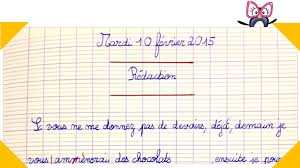 Mardi 10 février 2015
Rédaction
Si vous ne me donnez pas de devoirs, déjà, demain je
vous ammènerai des chocolats ensuite je pou